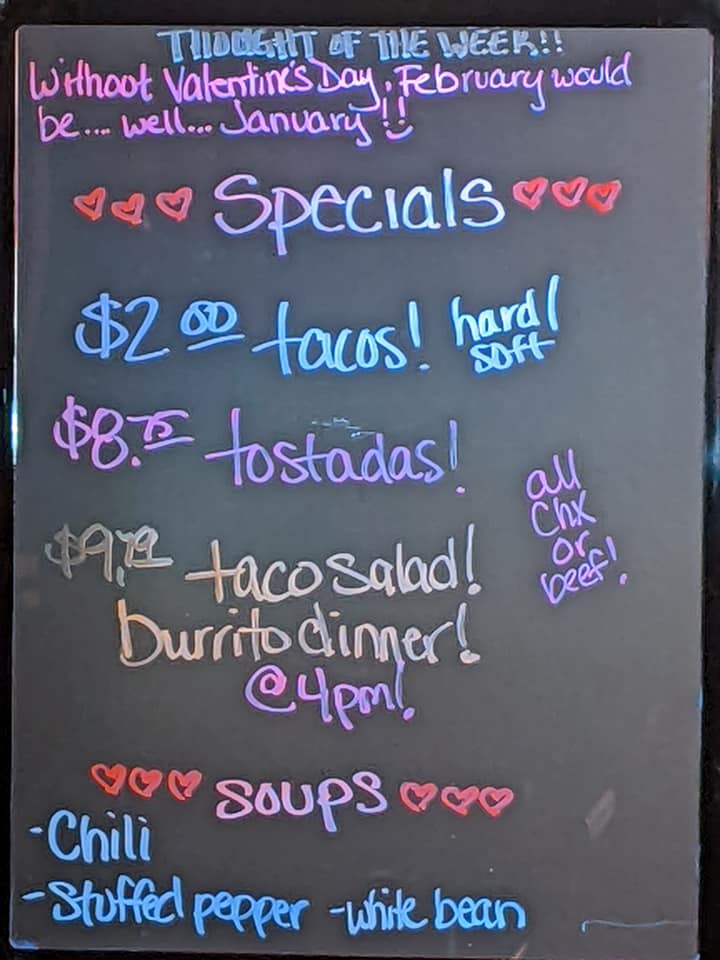 THOUGHT OF THE WEEK!!
Without Valentine's Day, February would
be.... well... January!!
Specials
$2.00 tacos! hard/
soft
$8.75 tostadas!
all
Chx
or
beef!
taco salad!
burrito dinner!
@4pm!
SOUPS
-Chili
-Stuffed pepper -white bean